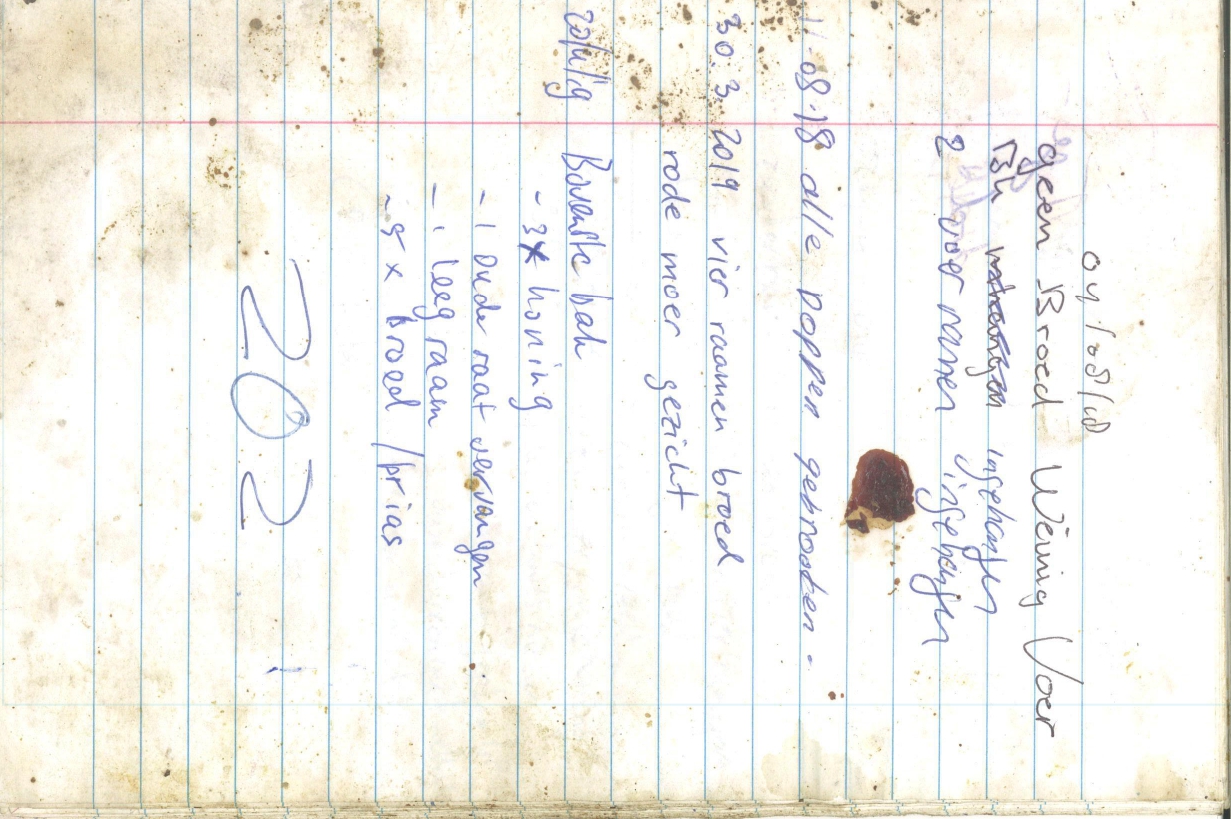 04/08/18
geen Broed Weinig Voer
Bk ingehangen
2 voer ramen ingehangen
11.08.18 alle doppen gebrooken.
30.3.2019 vier raamen broed
rode moer gezicht
20/4/19 Bovenste bak
- 3x honing
- 1 oude raat vervangen
- 1 leeg raam
- 5 x broed /prias
202